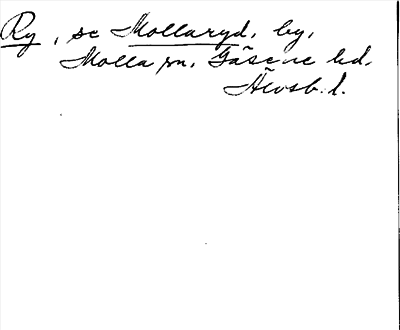 Ry, se Mollaryd, by,
Molla sn, Gäsene hd,
Älvsb. l.